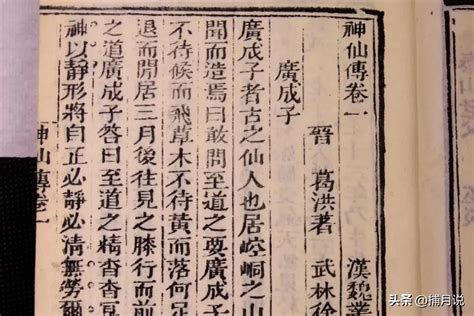 神仙傳卷一 漢魏叢
晉 葛洪著 武林徐
廣成子
廣成子者古之仙人也居崆峒之山
聞而造焉曰敢問至道之要廣成
不待候而飛草木不待黃而落何足
退而閒居三月後往見之膝行而前
之道廣成子答曰至道之精杳杳
神以靜形將自正必靜必清無勞爾
神仙傳卷一
头条 @捕月说